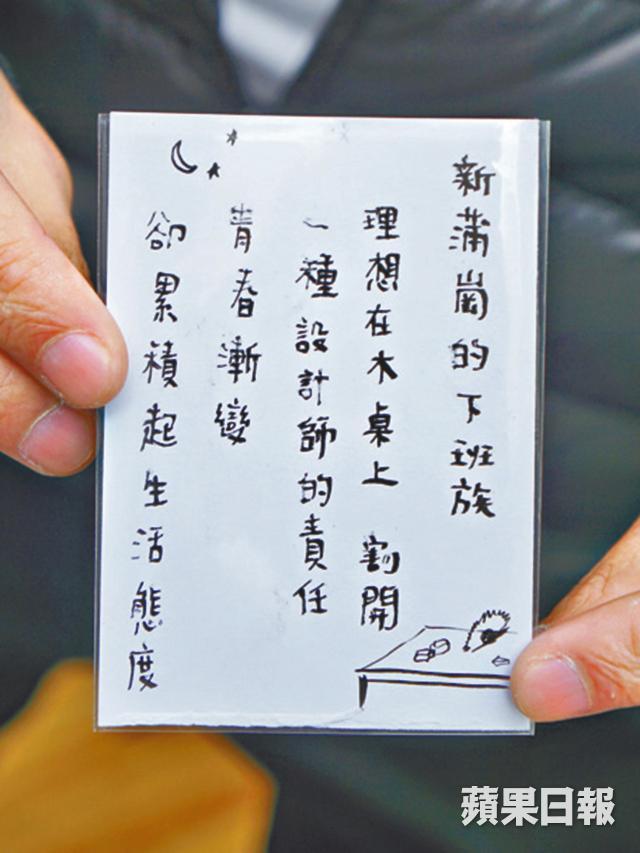 新蒲崗的下班族
理想在木桌上 割開
一種設計師的責任
青春漸變
卻累積起生活態度
蘋果日報